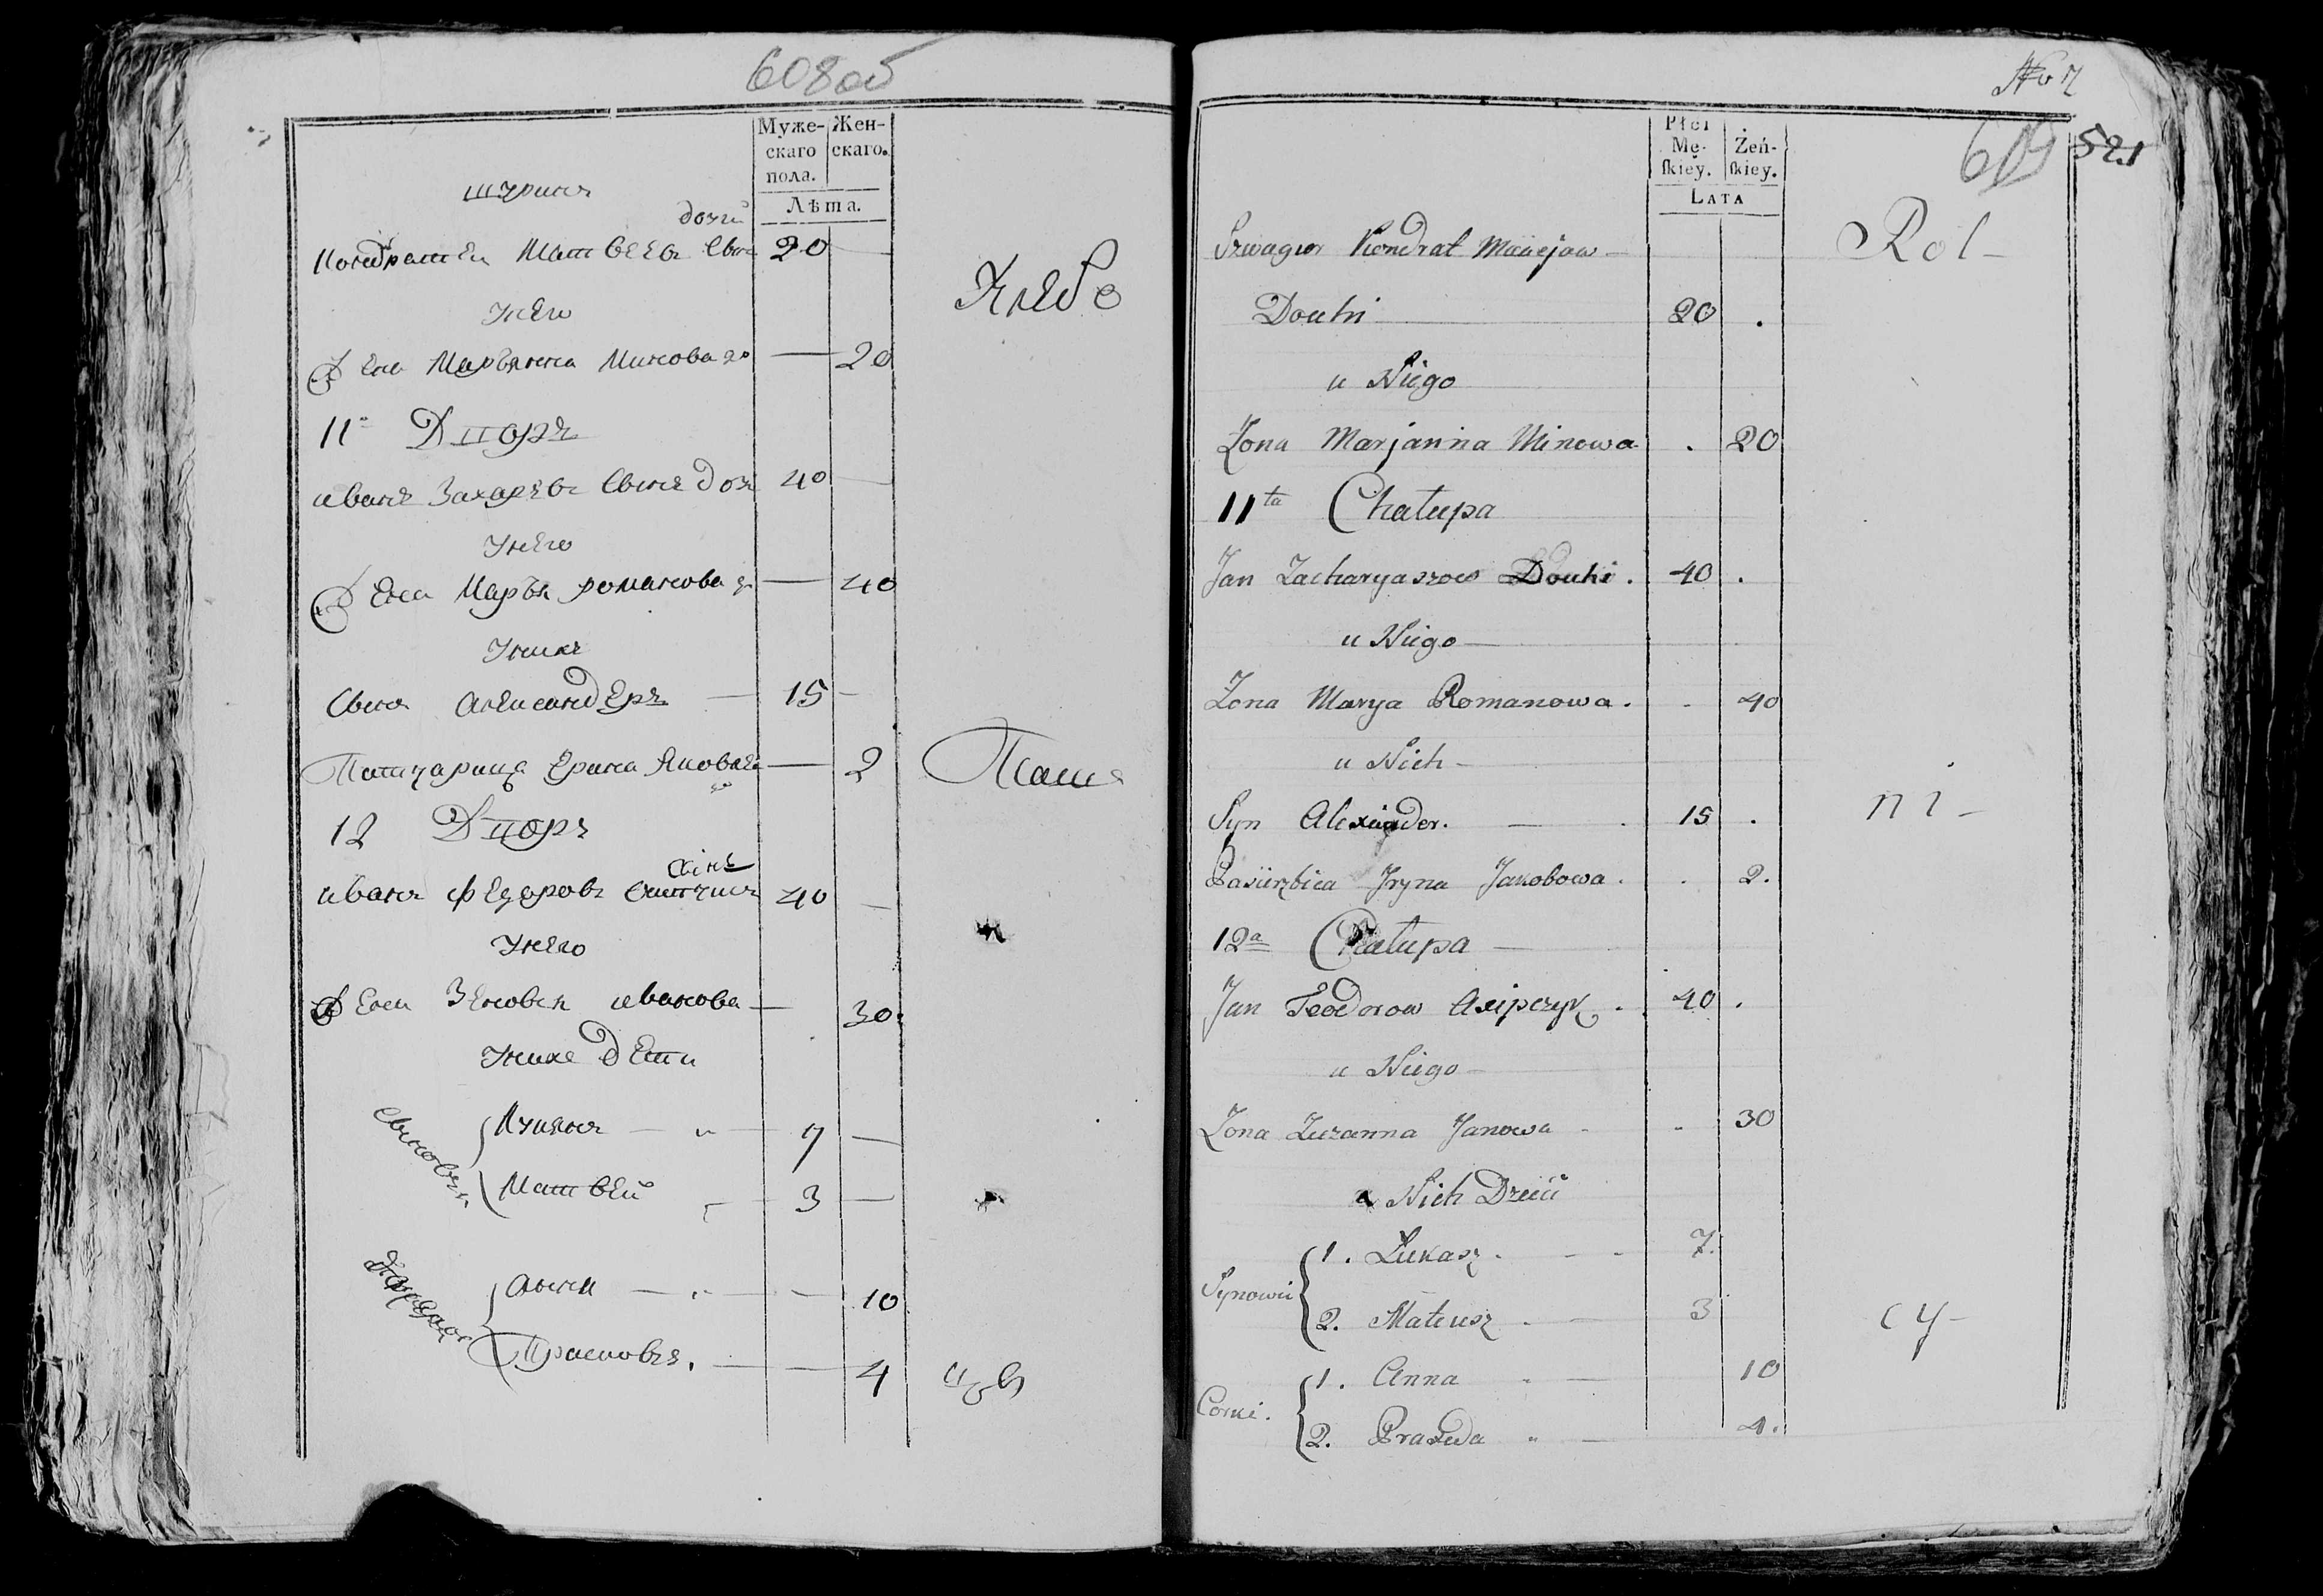 608 об
Муже-
скаго
пола.
Жен-
скаго.
Лѣта.
шуринъ
Кондратей Матвеевъ
20 —
Хлебо
унего
Жена Марьянна Минова
— 20
11 Дворъ
иванъ Захаровъ
40 —
унего
Жена Марья романова
— 40
униxъ
Сынъ Александеръ — 15 —
Патчарица Ерина Яковлева — 2
Паше
12 Дворъ
иванъ Федоровъ
40 —
унего
Жена Зеновья иванова — 30
унихъ дети
Сыновья
Лукянъ — 7 —
Матвей — 3 —
Анна — 10
Прасковья. — 4
цы
№ 7
609
521
Płci
Mę-
skiey.
Żeń-
skiey.
LATA
Szwagier Kondrat Maciejow —
Rol-
Douhi 20 .
u Niego
Żona Marjanna Minowa . 20
11ta Chałupa
Jan Zacharyaszow Douhi . 40 .
u Niego —
Żona Marya Romanowa . - 40
u Nich -
Syn Alexander. — . 15 .
ni-
Pasierzbica Jryna Jakobowa . . 2.
12a Chałupa —
Jan Teodorow Axipczyk . 40 .
u Niego —
Żona Zuzanna Janowa - - 30
u Nich Dzieci
Synowie
1. Łukasz . - - 7.
2. Mateusz . — 3
cy-
Corki.
1. Anna 10
2. 4.